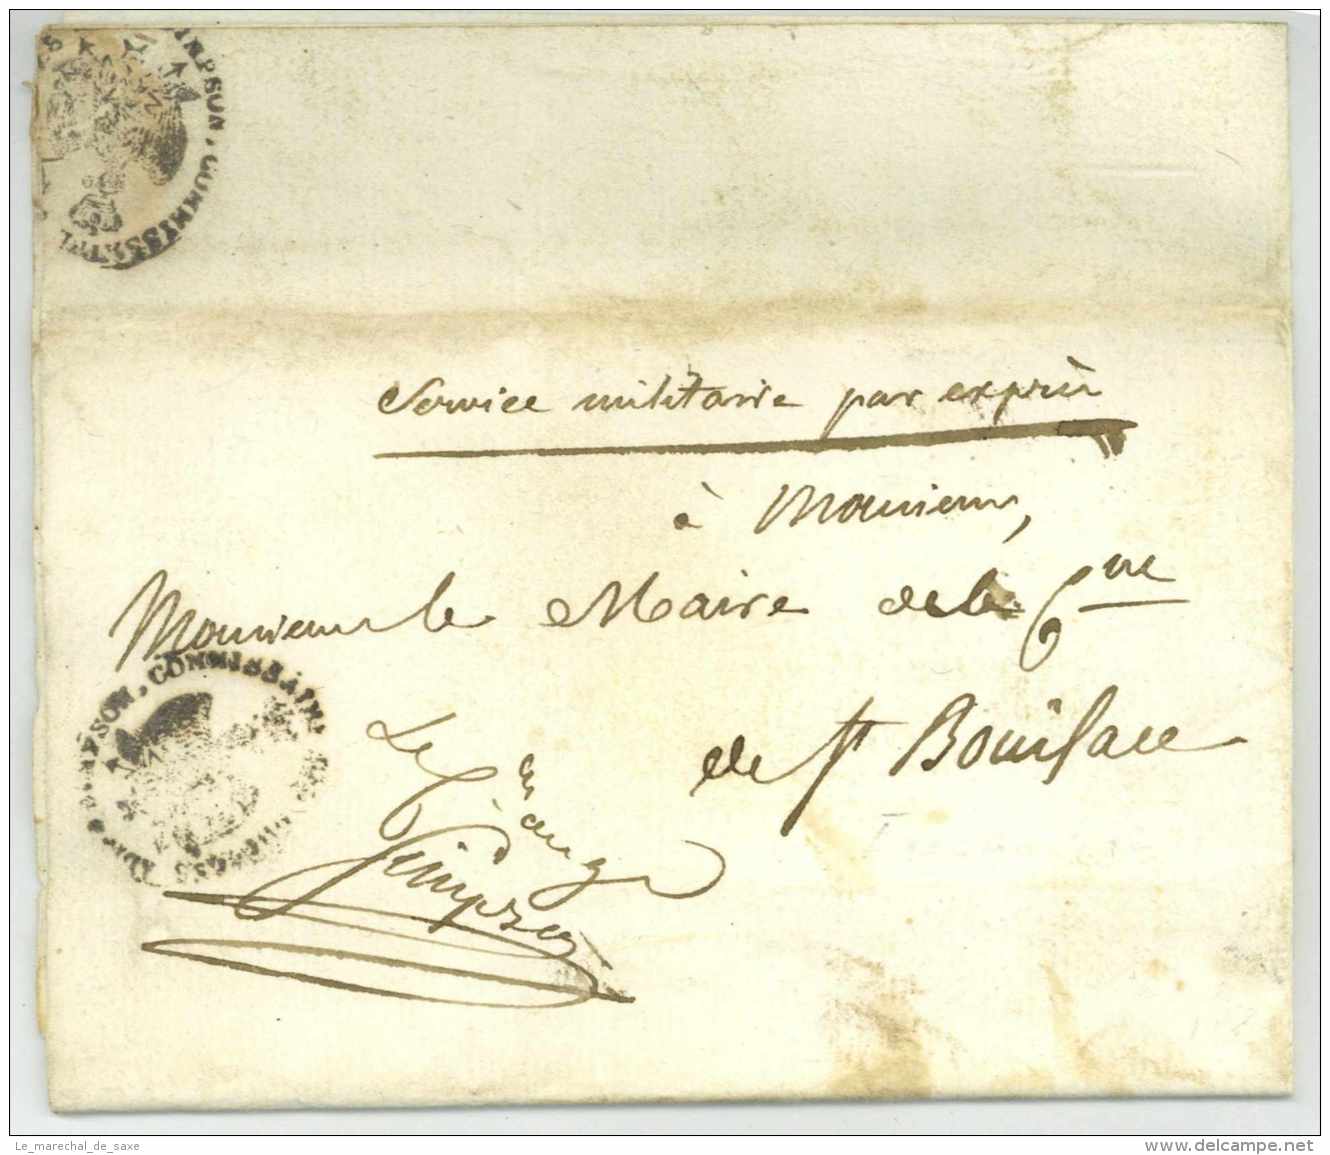 MPSON, COMMISSAI
Service militaire par exprès
à Monsieur,
Monsieur le Maire de la Cne
de St Boniface
PSON, COMMISSAIRE
Le
Simpson
Le_marechal_de_saxe
www.delcampe.net